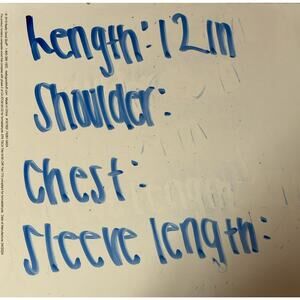 Length: 12in
Shoulder:
Chest:
Sleeve length: